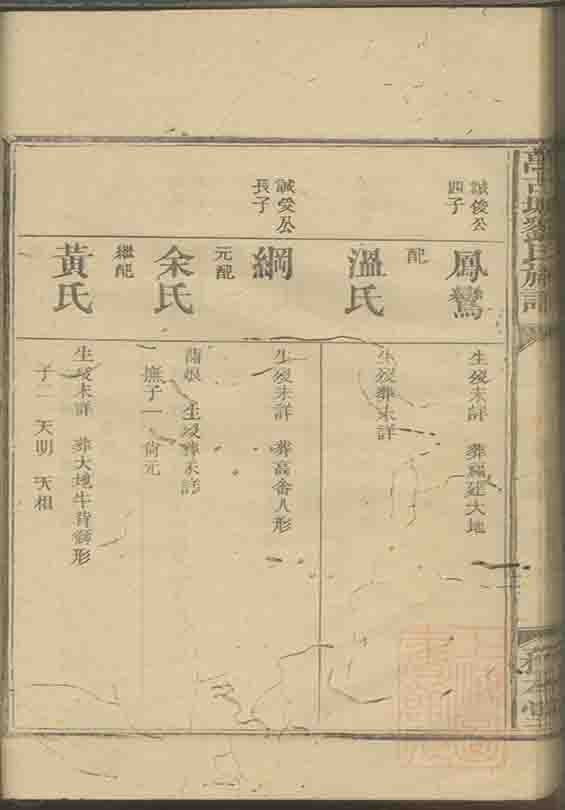 誠俊公
四子
鳳鸞
生歿未詳 葬福建大地
配
溫氏
生歿葬未詳
誠受公
長子
綱
生歿未詳 葬高畲人形
元配
余氏
蒲娘 生歿葬未詳
撫子一 尚元
繼配
黃氏
生歿未詳 葬大地牛背獅形
子二 天明 天相